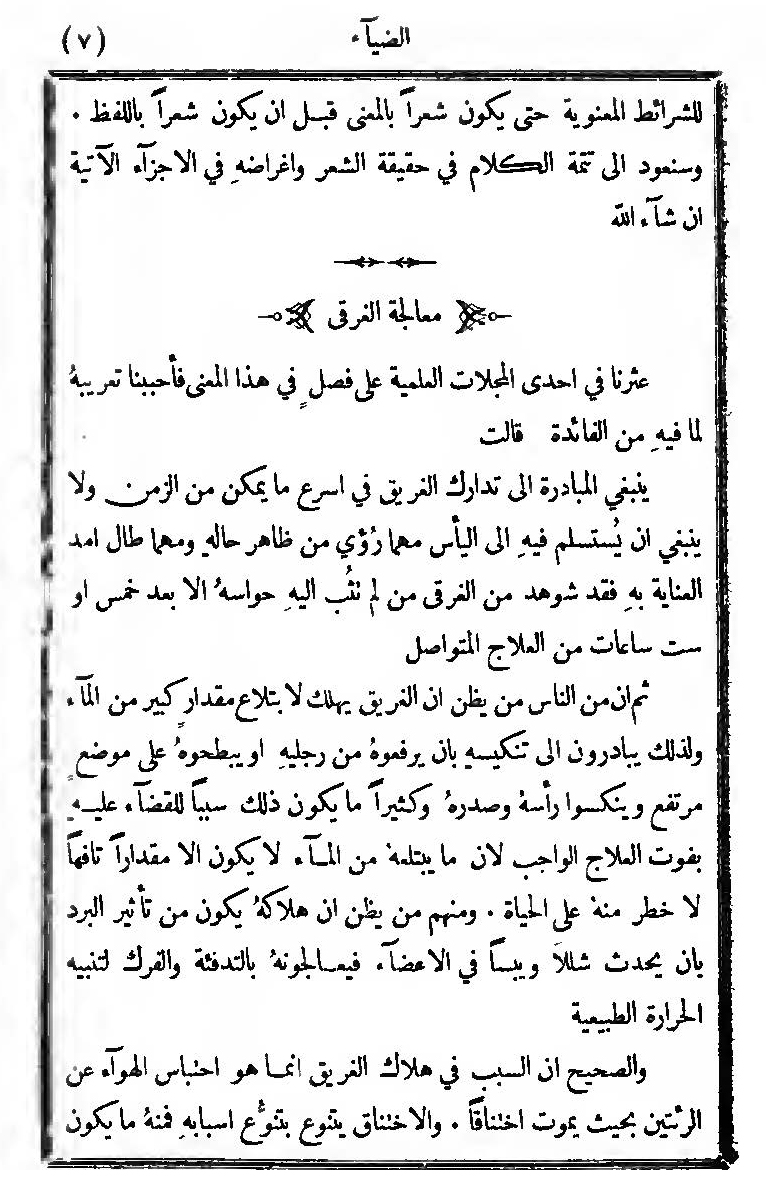 الضيآء
(٧)
للشرائط المعنوية حتى يكون شعراً بالمعنى قبل ان يكون شعراً باللفظ .
وسنعود الى تتمة الكلام في حقيقة الشعر واغراضهِ في الاجزآء الآتية
ان شآء الله
معالجة الغرقى
عثرنا في احدى المجلات العلمية على فصلٍ في هذا المعنى فأحببنا تعريبهُ
لما فيهِ من الفائدة قالت
ينبغي المبادرة الى تدارك الغريق في اسرع ما يمكن من الزمن ولا
ينبغي ان يُستسلم فيهِ الى اليأس مهما رُؤي من ظاهر حالهِ ومهما طال امد
العناية بهِ فقد شوهد من الغرقى من لم تثُب اليهِ حواسهُ الا بعد خمس او
ست ساعات من العلاج المتواصل
ثم ان من الناس من يظن ان الغريق يهلك لابتلاع مقدارٍ كبير من المآء
ولذلك يبادرون الى تنكيسهِ بان يرفعوهُ من رجليهِ او يبطحوهُ على موضعٍ
مرتفع وينكسوا رأسهُ وصدرهُ وكثيراً ما يكون ذلك سبباً للقضآء عليهِ
بفوت العلاج الواجب لان ما يبتلعهُ من المآء لا يكون الا مقداراً تافهاً
لا خطر منهُ على الحياة . ومنهم من يظن ان هلاكهُ يكون من تأثير البرد
بان يحدث شللاً ويبساً في الاعضآء فيعالجونهُ بالتدفئة والفرك لتنبيه
الحرارة الطبيعية
والصحيح ان السبب في هلاك الغريق انما هو احتباس الهوآء عن
الرئتين بحيث يموت اختناقاً . والاختناق يتنوع بتنوُّع اسبابهِ فمنهُ ما يكون